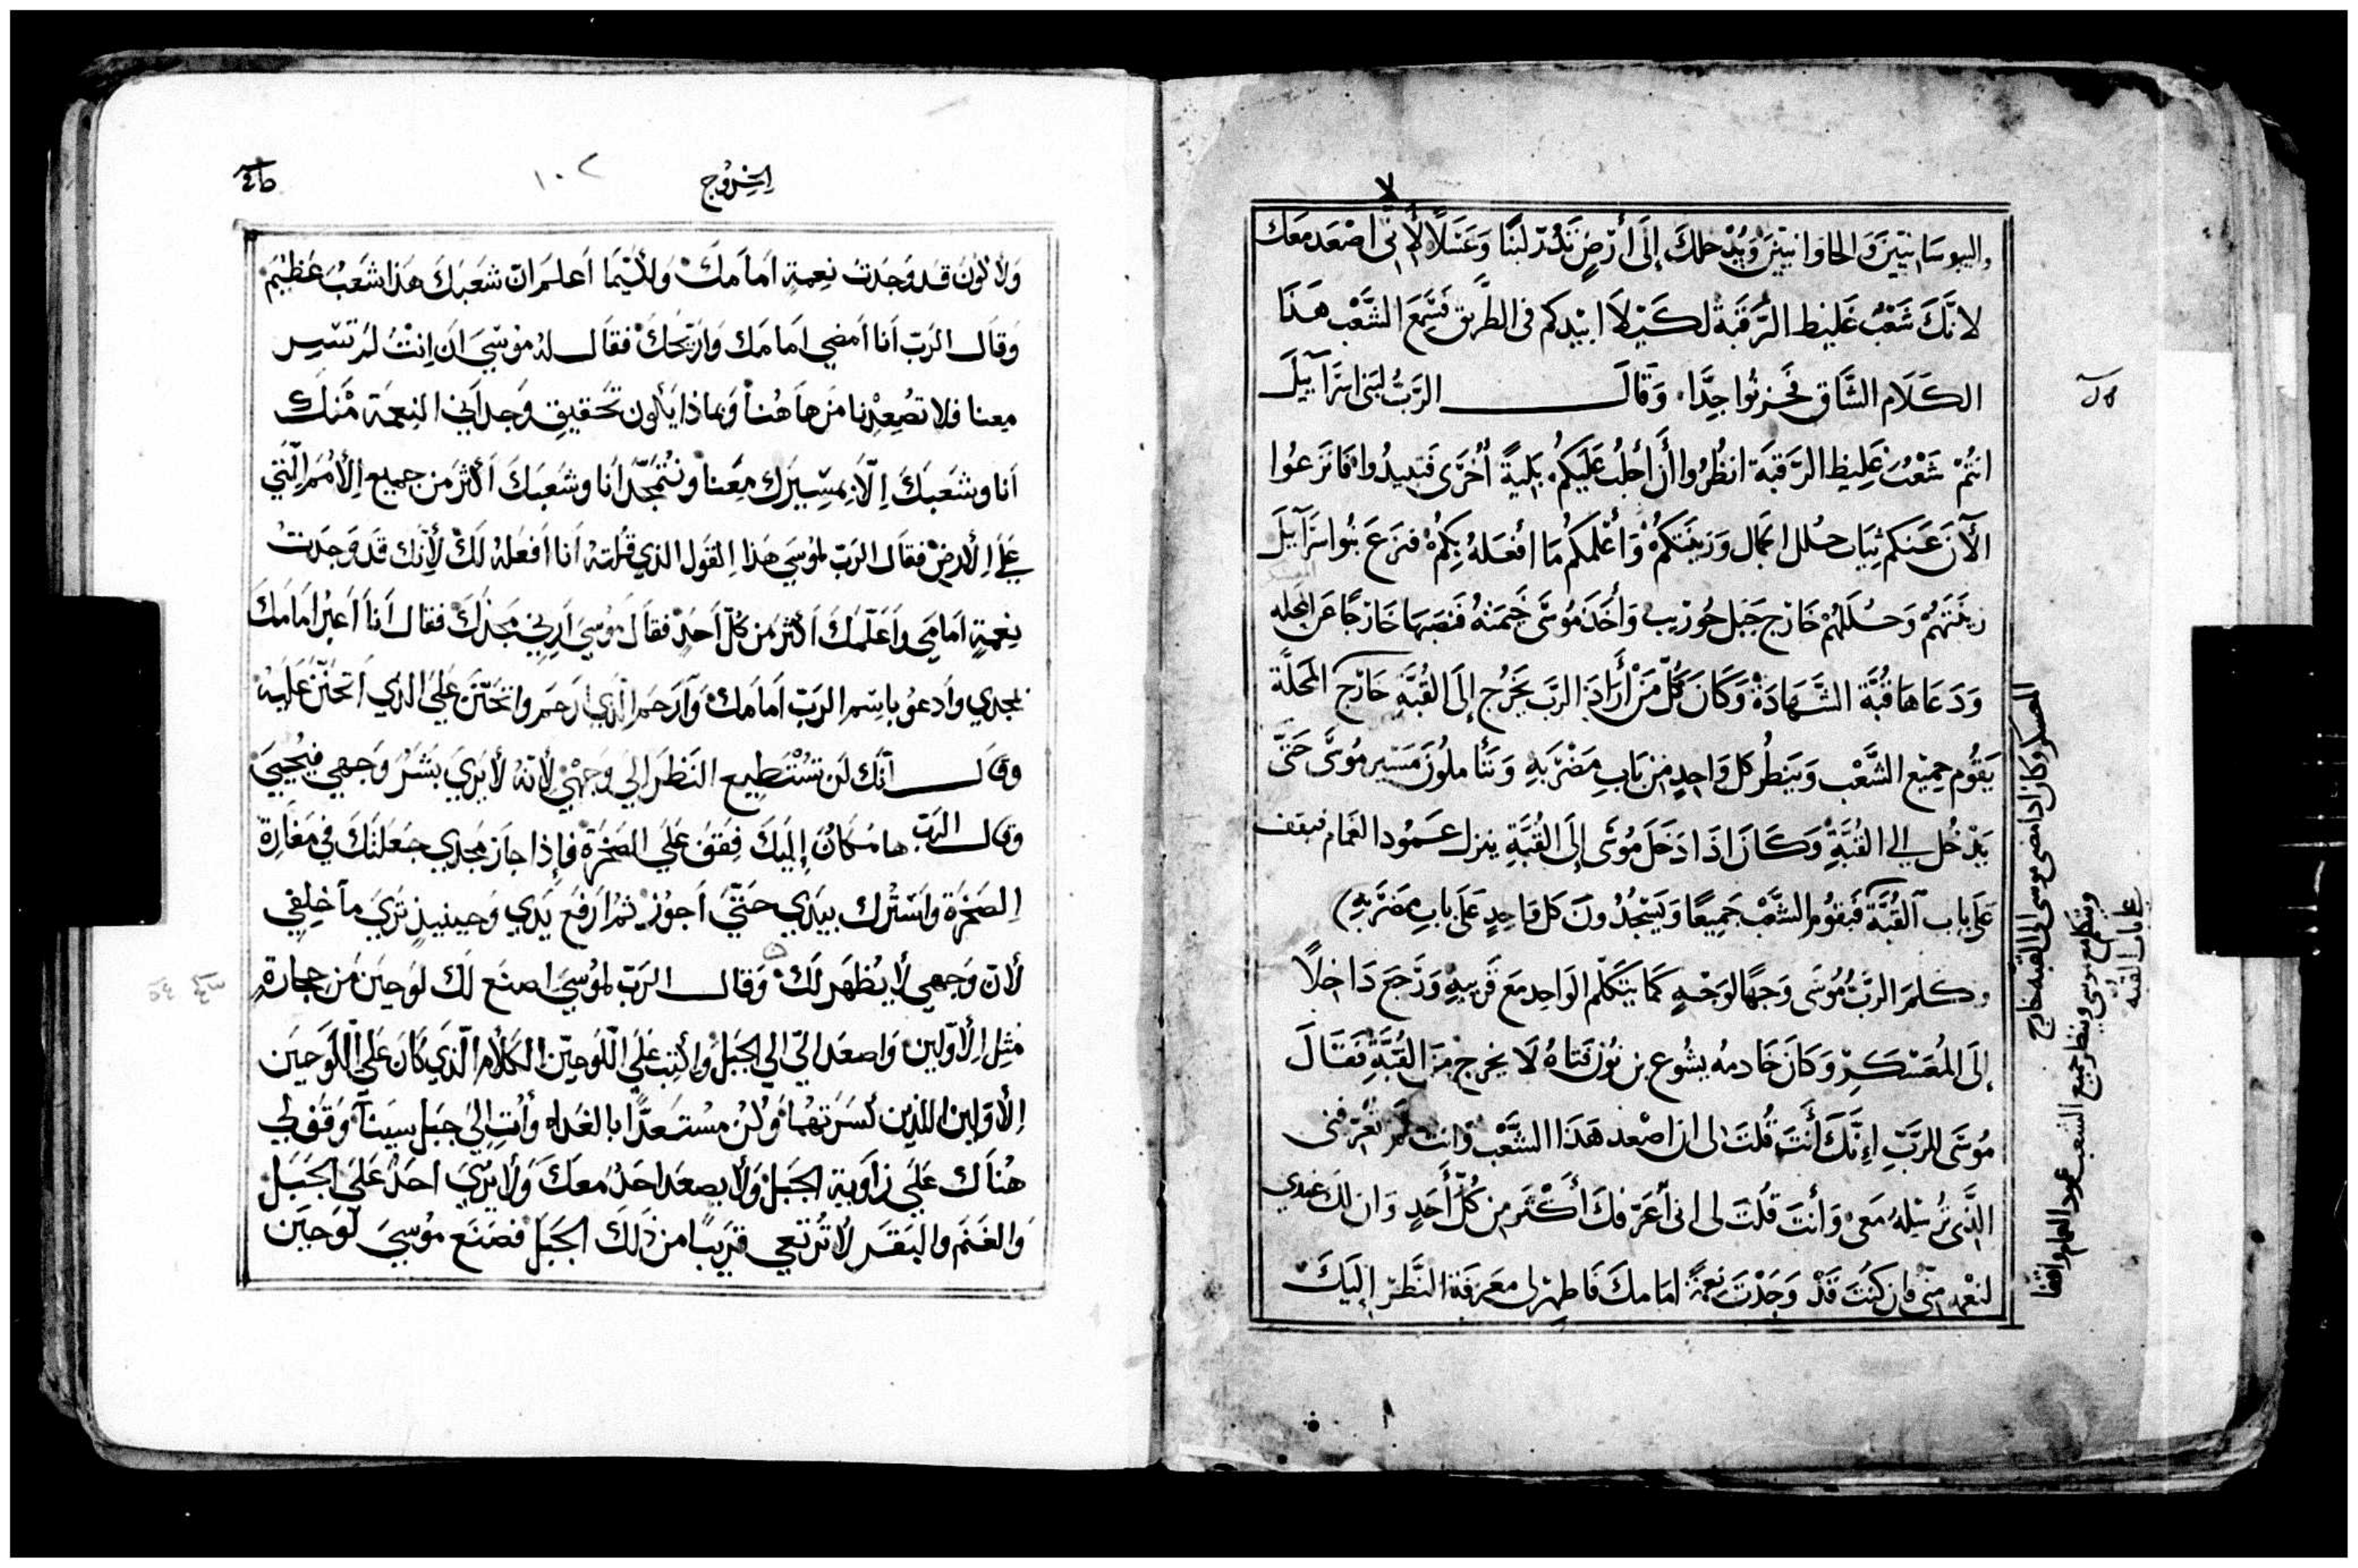 واليبوسانيين والحاوانيين ويدخلك إلى أرض تدر لبنا وعسلا لأني لا اصعد معك
لانك شعب غليظ الرقبة لكيلا ابيدكم في الطريق فسمع الشعب هذا
الكلام الشاق فحزنوا جدا وقال الرب لبني اسرآييل
انتم شعب غليظ الرقبة انظروا أن أجلب عليكم بلية أخرى فتبيدوا فانزعوا
الآن عنكم ثياب حلل الجمال وزينتكم وأعلمكم ما افعله بكم فنزع بنوا اسرآييل
زينتهم وحللهم خارج جبل حوريب وأخذ موسى خيمته فنصبها خارجا عن المحله
ودعاها قبة الشهادة وكان كل من أراد الرب يخرج إلى القبة خارج المحلة
يقوم جميع الشعب وينظر كل واحد من باب مضربه وتأملون مسير موسى حتى
يدخل الى القبة وكان اذا دخل موسى إلى القبة ينزل عمود الغمام فيقف
على باب القبة فيقوم الشعب جميعا ويسجدون كل واحد على باب مضربه
وكلم الرب موسى وجها لوجه كما يتكلم الواحد مع قريبه ورجع داخلا
إلى المعسكر وكان خادمه يشوع بن نون فتاه لا يخرج من القبة فقال
موسى للرب إنك أنت قلت لى ان اصعد هذا الشعب وانت لم تعرفنى
الذى ترسله معى وأنت قلت لى انى أعرفك أكثر من كل أحد وان لك عندي
لنعمه منى فان كنت قد وجدت نعمة امامك فاظهر لى معرفة النظر إليك
المعسكر وكان اذا مضى موسى الى القبه خارج
عمود الغمام واقفا
ويتكلم مع موسى وينظر جميع الشعب
على باب القبه
اخروج
١٠٢
ولاكون قد وجدت نعمة امامك ولكيما اعلم ان شعبك هذا شعب عظيم
وقال الرب أنا امضي امامك واريحك فقال له موسي ان انت لم تسير
معنا فلا تصعدنا من هاهنا وبماذا يكون تحقيق وجداني النعمة منك
أنا وشعبك إلا بمسيرك معنا ونتمجد انا وشعبك أكثر من جميع الأمم التي
علي الأرض فقال الرب لموسي هذا القول الذي قلته أنا افعله لك لأنك قد وجدت
نعمة امامي واعلمك أكثر من كل أحد فقال موسي اريني مجدك فقال أنا اعبر امامك
بمجدي وادعو باسم الرب امامك وآرحم الذي ارحم واتحنن علي الذي اتحنن عليه
وقال أنك لن تستطيع النظر الي وجهي لأنه لا يري بشر وجهي فيحيي
وقال الرب ها مكان إليك فقف علي الصخرة فإذا جاز مجدي جعلتك في مغارة
الصخرة واسترك بيدي حتي اجوز ثم ارفع يدي وحينيذ تري ما خلفي
لأن وجهي لا يظهر لك وقال الرب لموسي اصنع لك لوحين من حجارة
مثل الأولين واصعد الي الي الجبل واكتب علي اللوحين الكلام الذي كان علي اللوحين
الأولين اللذين كسرتهما وكن مستعدا بالغداه وأت إلي جبل سينآ وقف لي
هناك علي زاوية الجبل ولا يصعد احد معك ولا يري احد علي الجبل
والغنم والبقر لا ترتعي قريبا من ذلك الجبل فصنع موسي لوحين